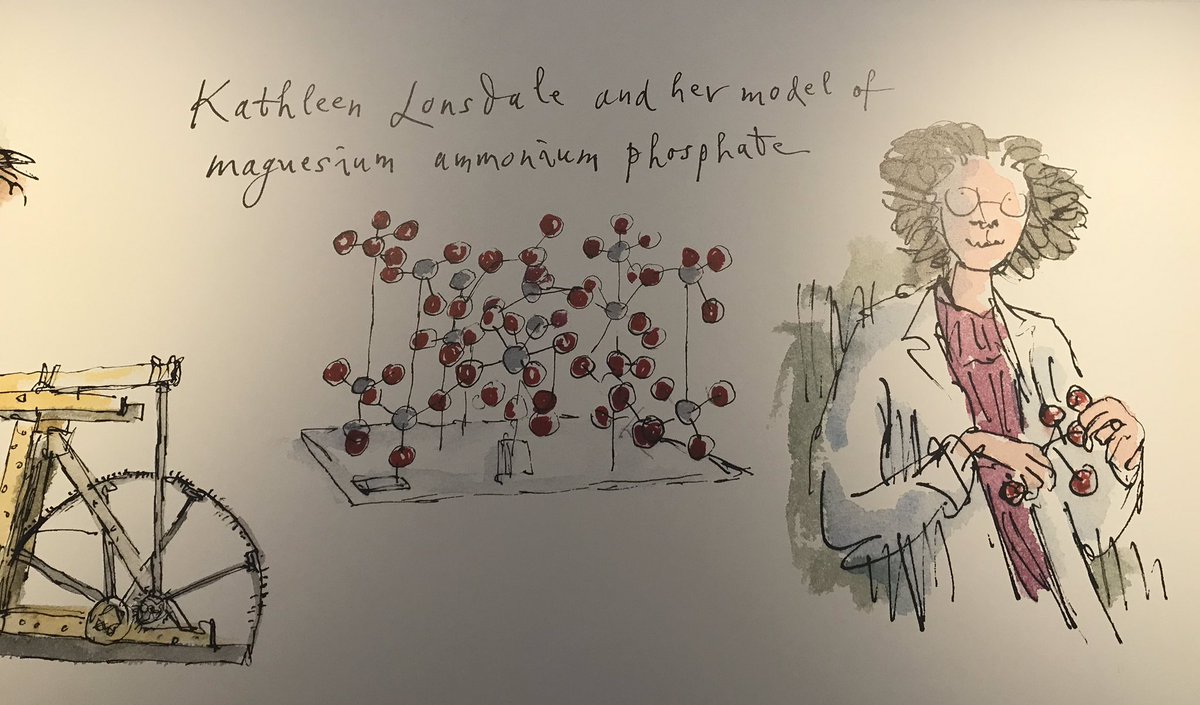 Kathleen Lonsdale and her model of
magnesium ammonium phosphate